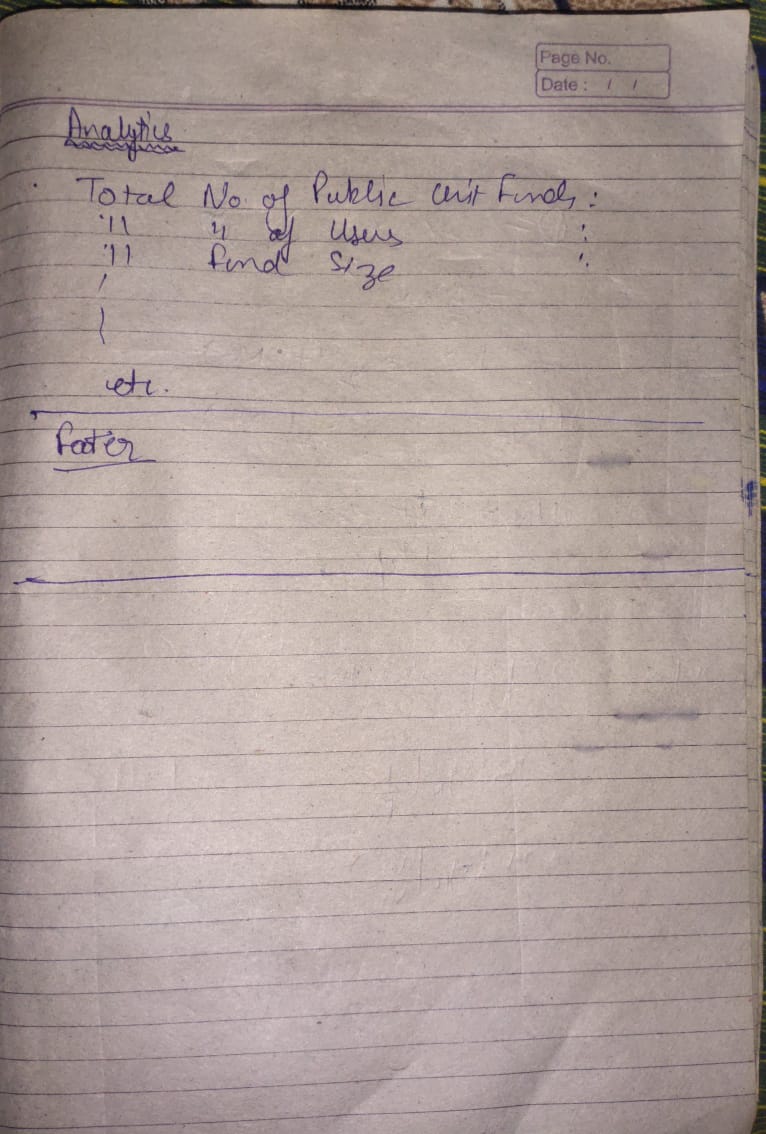 Page No.
Date : / /
Analytics
Total No. of Public Unit Funds :
'11 4 of Users :
'11 Fund Size :
etc.
Footer